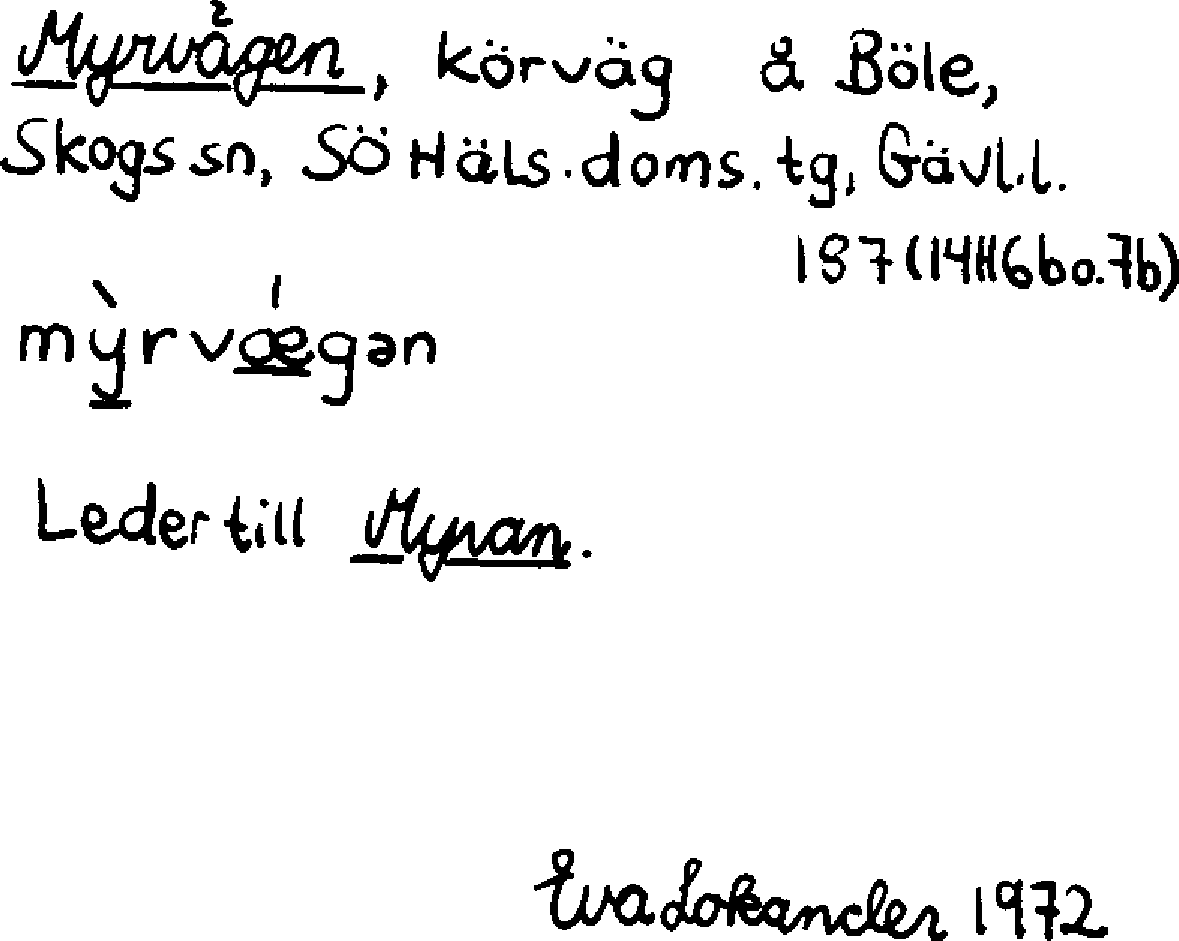 Myrvägen, körväg å Böle,
Skogs sn, SÖ Häls. doms. tg, Gävl.l.
187 (14H6b o. 7b)
mỳrvǽgən
Leder till Myran.
Eva Lokander 1972